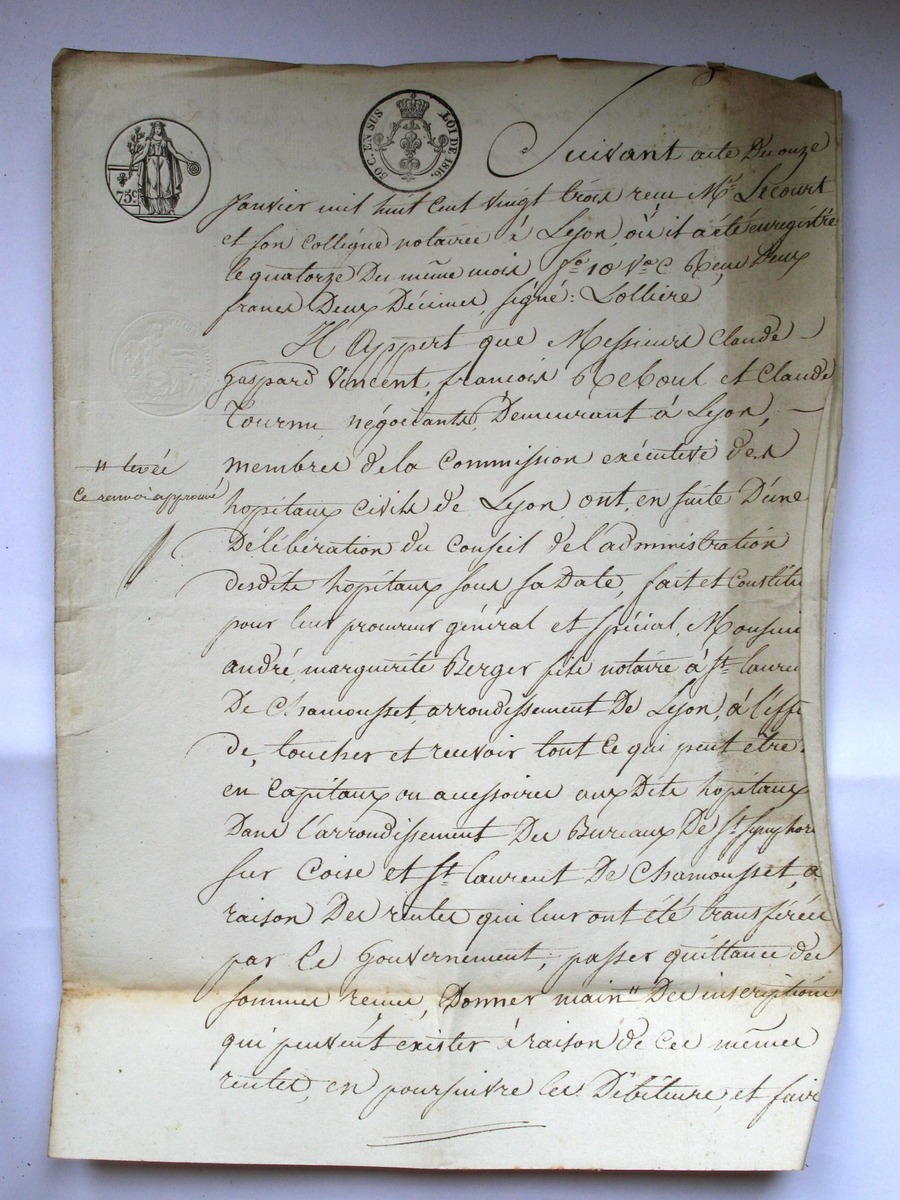 75c
30 C. EN SUS LOI DE 1816.
Suivant acte Du onze
Janvier mil huit cent vingt trois reçu Me. Lecourt
et son collègue notaires à Lyon, où il a été enregistré
le quatorze Du même mois fo. 10 Vo. C Reçu Deux
francs Deux Décimes, signé: Lolliere
Il Appert que Messieurs Claude
Gaspard Vincent, françois Reboul et Claude
Tournu, négociants, Demeurant à Lyon,
membres de la Commission exécutive des
hopitaux civils de Lyon, ont, en suite D'une
Délibération du conseil de l'administration
desdits hopitaux sous sa Date, fait et Constitu
pour leur procureur général et spécial, Monsieu
andré marguerite Berger fils notaire à St. lauren
De Chamousset, arrondissement De Lyon, à l'effe
de, toucher et recevoir tout ce qui peut être
en Capitaux ou accessoires aux Dits hopitaux
Dans l'arrondissement Des Bureaux De St. Symphor
sur Coise et St. laurent De Chamousset, a
raison Des rentes qui leur ont été transférées
par le Gouvernement, passer quittance des
sommes reçues, Donner main" Des inscriptions
qui peuvent exister à raison de ces mêmes
rentes, en poursuivre les Débiteurs, et fair
" levée
Ce renvoi approuvé